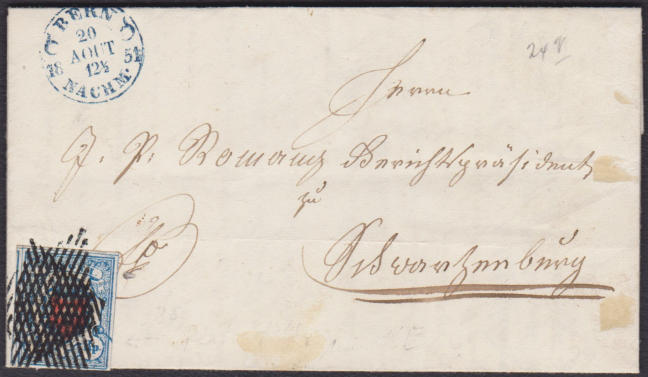 BERN
20
AOUT
18 12½ 51
NACHM.
24
Herrn
J. P. Romang Gerichtspräsident
zu
Schwartzenburg